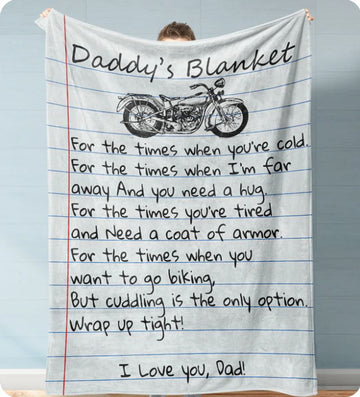 Daddy's Blanket
For the times when you're cold.
For the times when I'm far
away And you need a hug.
For the times you're tired
and Need a coat of armor.
For the times when you
want to go biking,
But cuddling is the only option.
Wrap up tight!
I Love you, Dad!